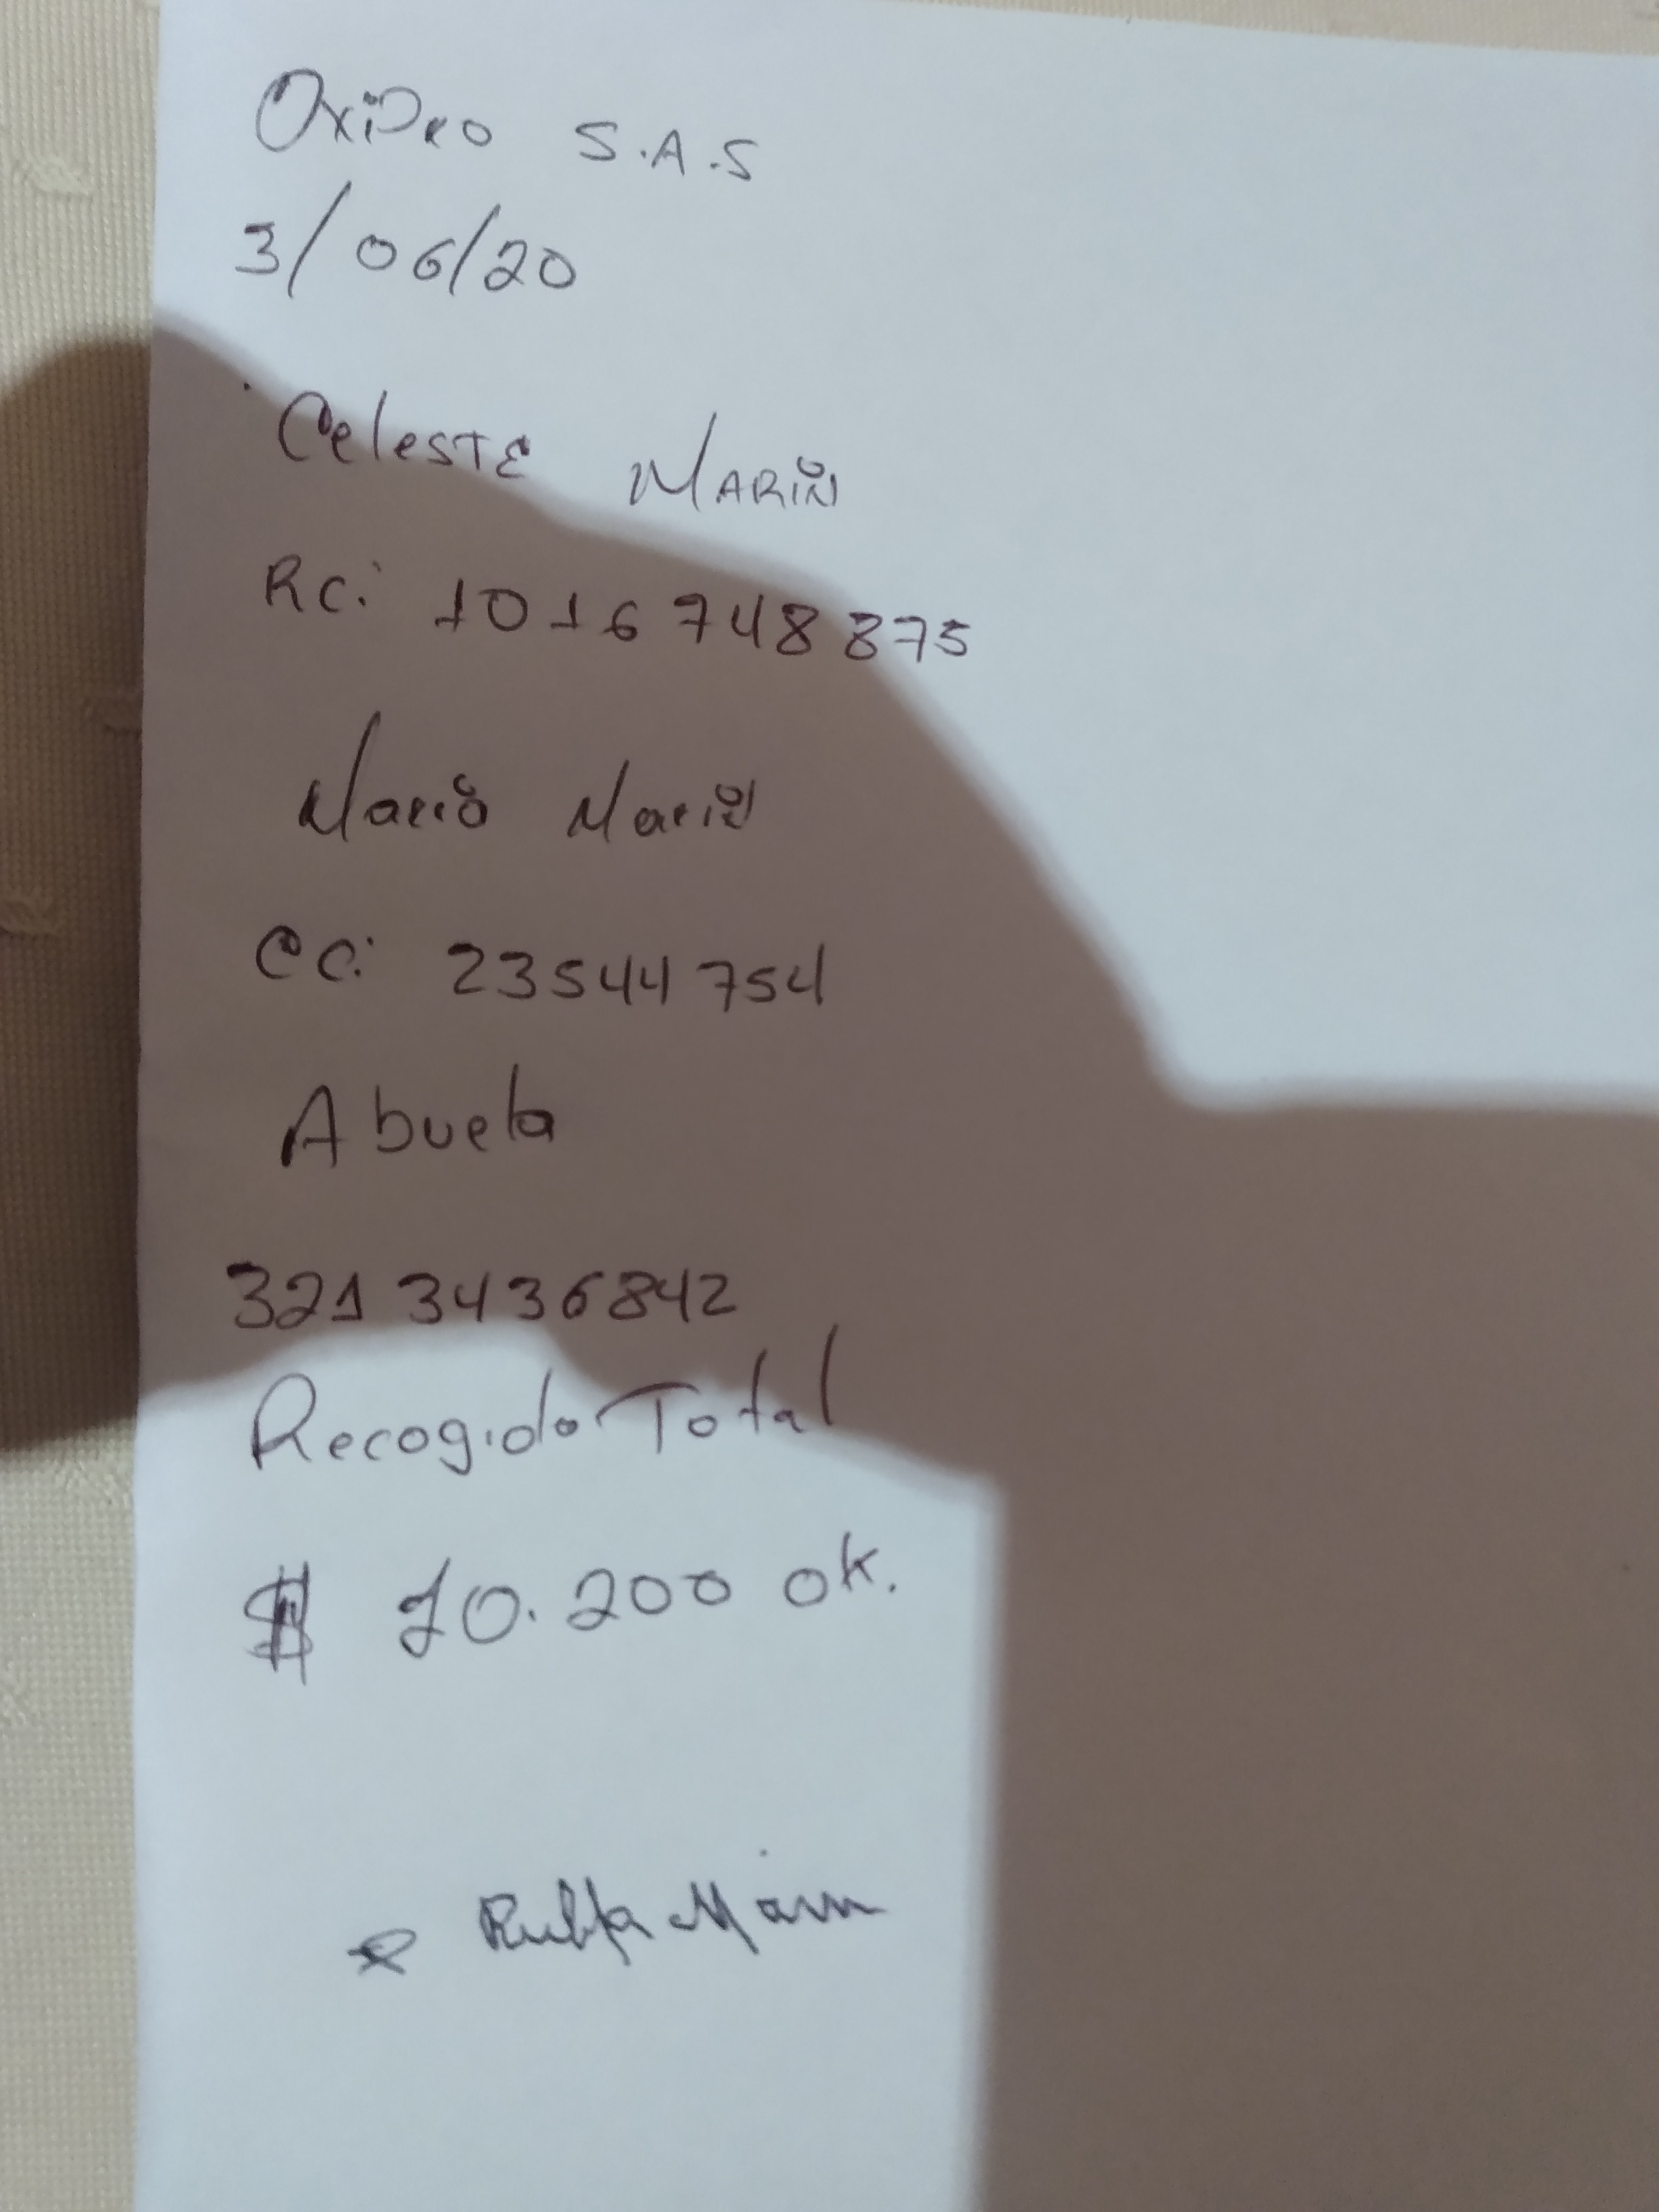 OxiPro S.A.S
3/06/20
Celeste Marin
RC: 1016748875
Mario Marin
CC: 23544754
Abuela
321 3436842
Recogido Total
$ 70.200 ok.
Marin